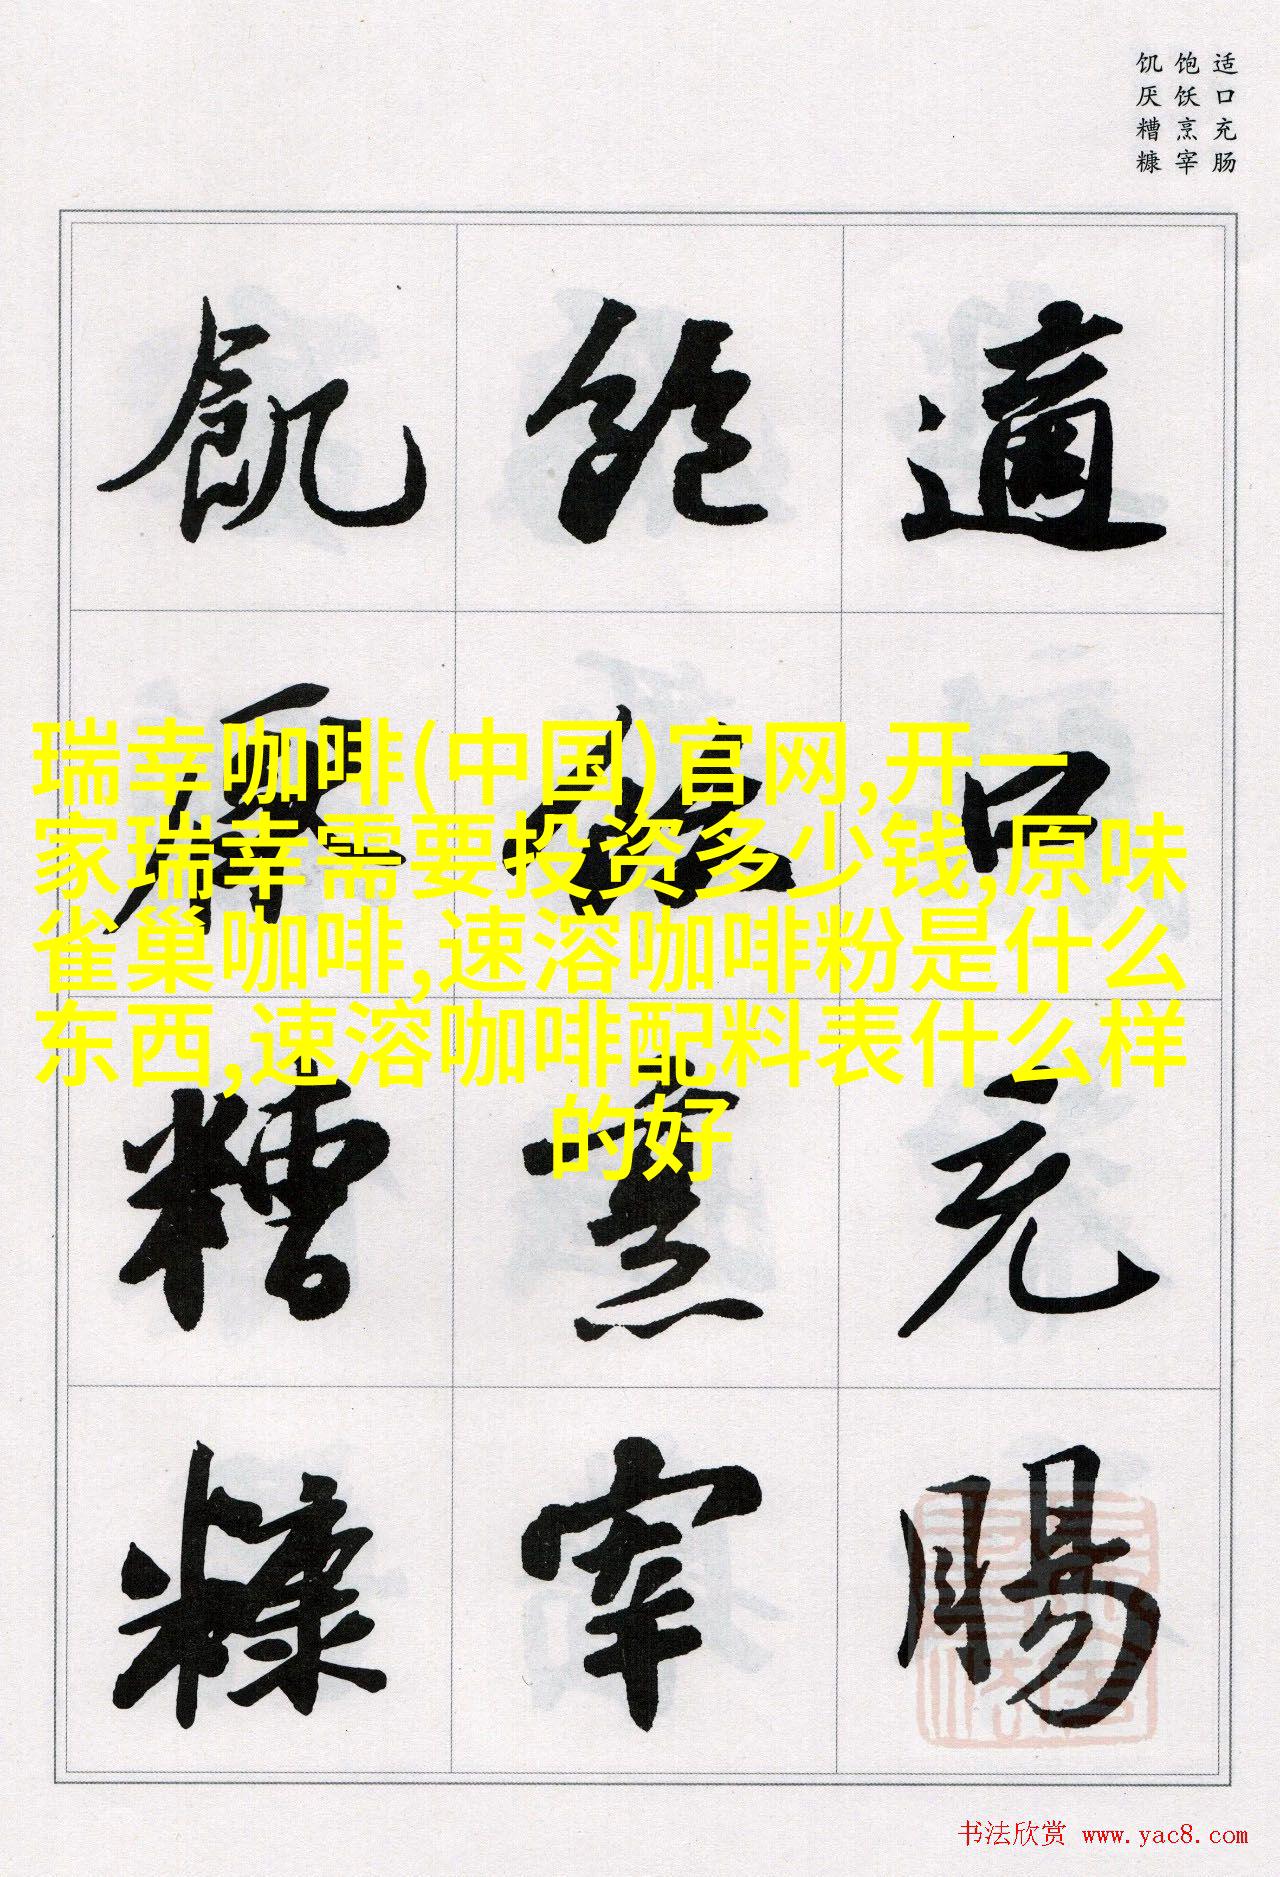 适口充肠
饱饫烹宰
饥厌糟糠
適口充腸
飽飫烹宰
飢厭糟糠
瑞幸咖啡(中国)官网,开一
家瑞幸需要投资多少钱,原味
雀巢咖啡,速溶咖啡粉是什么
东西,速溶咖啡配料表什么样
的好
书法欣赏 www.yac8.com